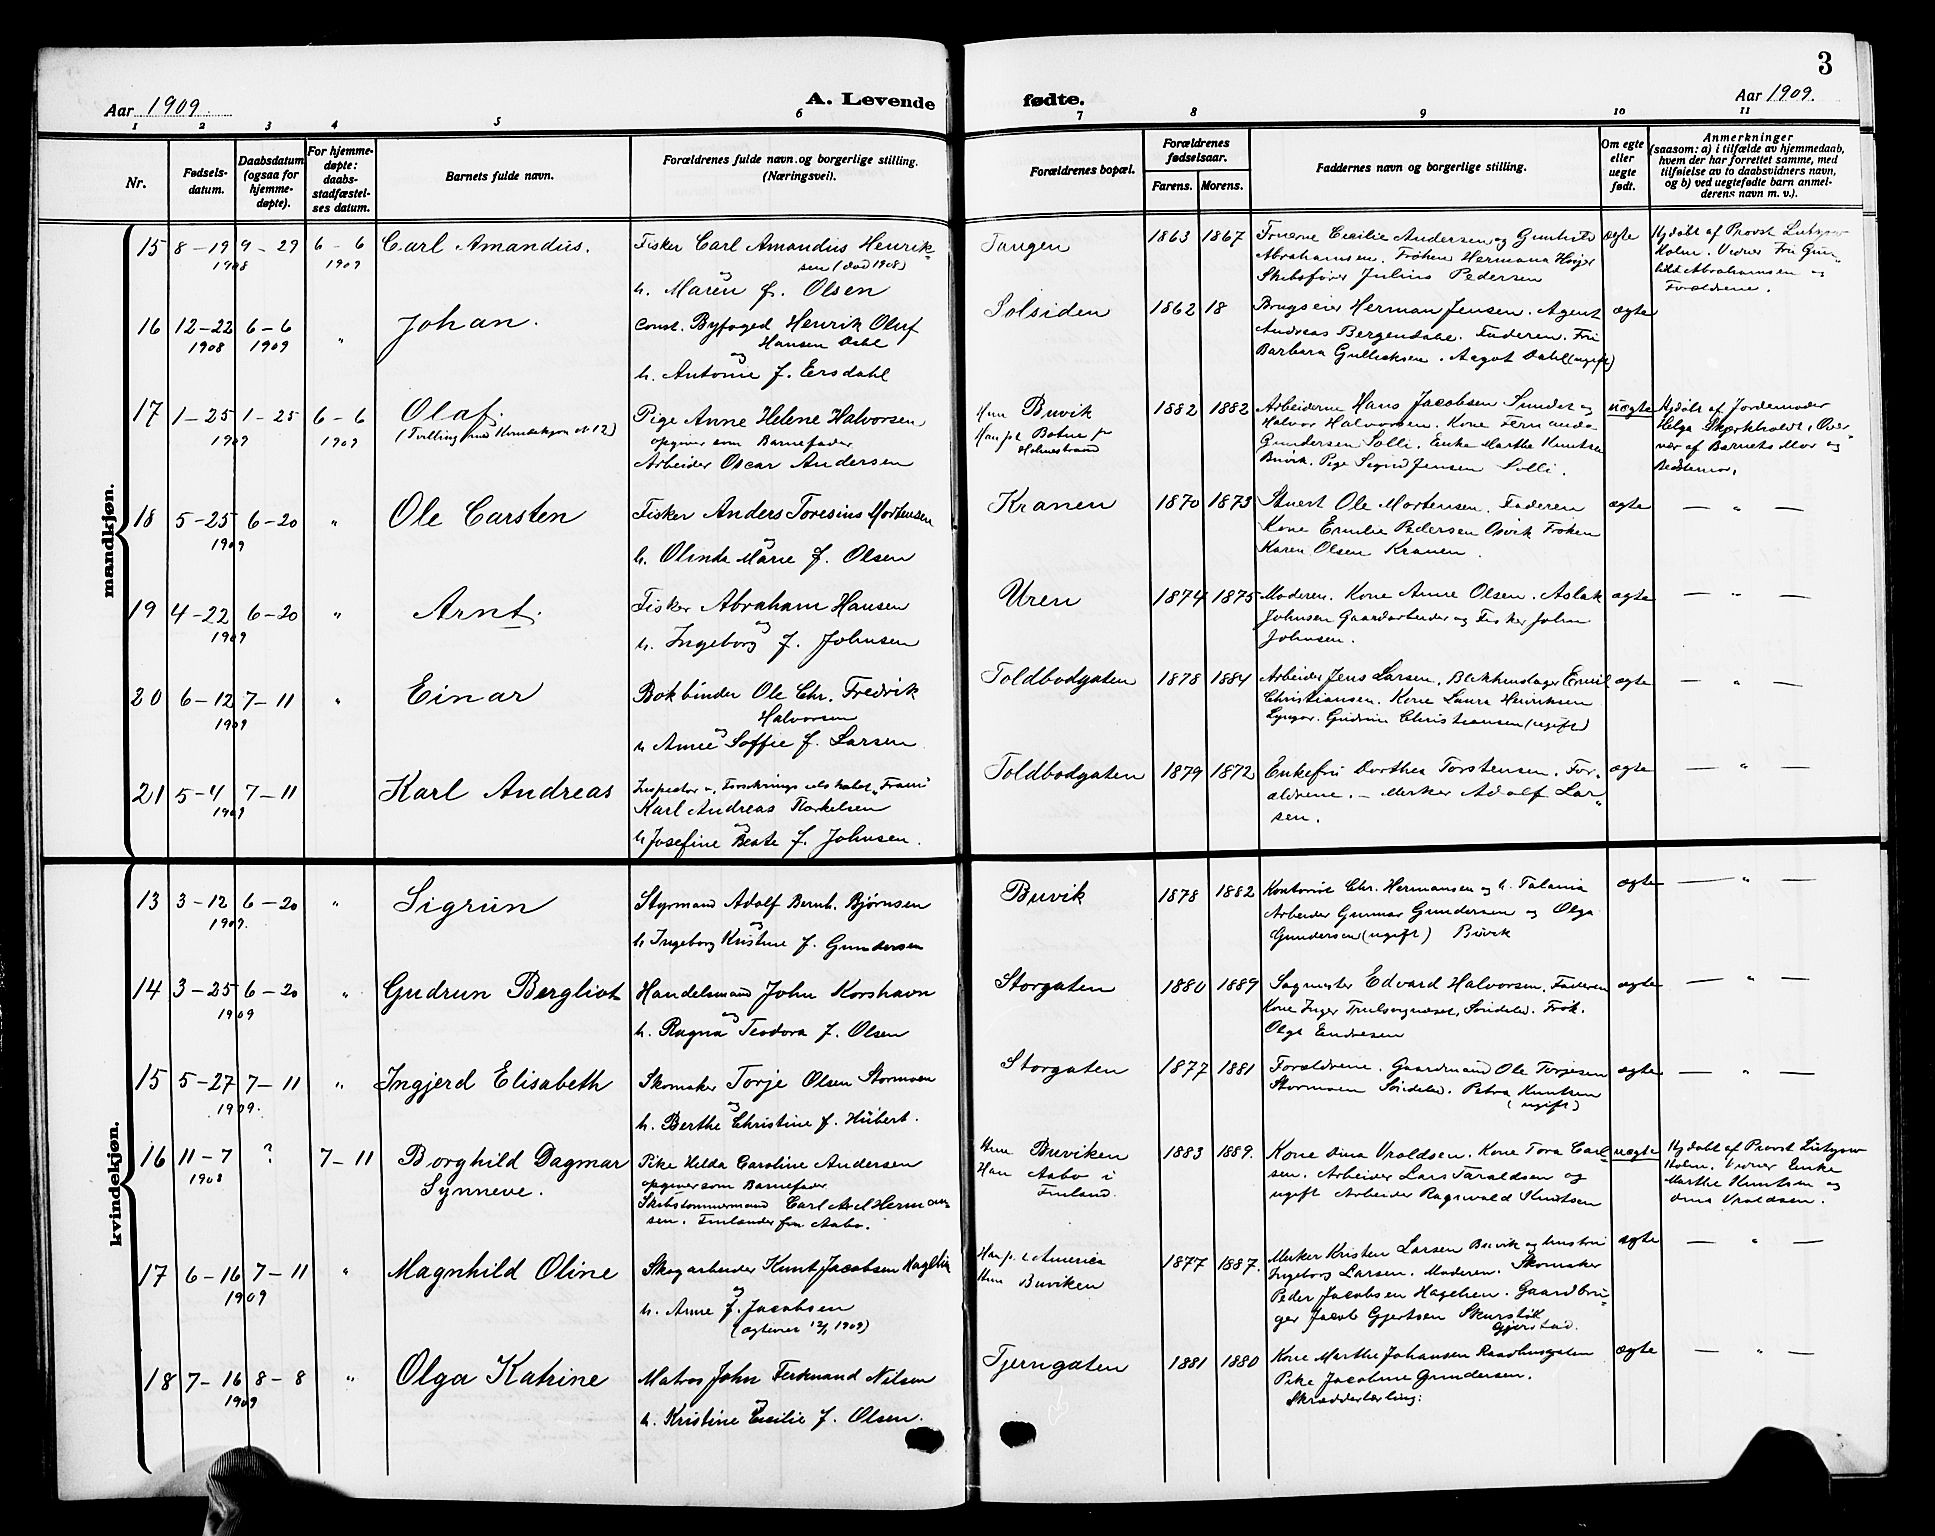 3
Aar 1909.
A. Levende
fødte.
Aar 1909.
1 2 3 4 5 6 7 8 9 10 11
Nr.
Fødsels-
datum.
Daabsdatum
(ogsaa for
hjemme-
døpte).
For hjemme-
døpte:
daabs-
stadfæstel-
ses datum.
Barnets fulde navn.
Forældrenes fulde navn og borgerlige stilling.
(Næringsvei).
Forældrenes bopæl.
Forældrenes
fødselsaar.
Farens. Morens.
Faddernes navn og borgerlige stilling.
Om egte
eller
uegte
født.
Anmerkninger
(saasom: a) i tilfælde av hjemmedaab,
hvem der har forrettet samme, med
tilføielse av to daabsvidners navn,
og b) ved uegtefødte barn anmel-
derens navn m. v.).
mandkjøn.
15 8-19 1908 9-29 6-6 1909 Carl Amandus.
Fisker Carl Amandus Henrik-
sen (død 1908)
og
h. Maren f. Olsen
Tangen 1863 1867
Fruerne Cecilie Andersen og Gunhild
Abrahamsen. Frøken Hermana
Skibsfører Julius Pedersen
ægte
Hjdøbt af Provst Lütgow
Holm. Vidner Fru Gun-
hild Abrahamsen og
Forældrene.
16 12-22 1908 6-6 1909 " Johan.
Const. Byfoged Henrik Oluf
Hansen Dahl
og
h. Antonie f. Eersdahl
Solsiden 1862 18
Brugseier Herman Jensen. Agent
Andreas Bergendahl. Faderen. Fru
Barbara Gullicksen. Aagot Dahl (ugift)
ægte
17 1-25 1909 1-25 6-6 1909 Olaf.
(Tvilling med Kvindekjøn No 12)
Pige Anne Helene Halvorsen
opgiver som Barnefader
Arbeider Oscar Andersen
Hun Buvik
Han Botne pr
Holmestrand
1882 1882
Arbeiderne Hans Jacobsen Sundet og
Halvor Halvorsen. Kone Fernanda
Gundersen Solli. Enke Marthe Knutsen
Buvik. Pige Sigrid Jensen Solli.
uægte
Hjdøbt af Jordemoder
Helga Skjerkholdt. Over-
vær af Barnets Mor og
Bedstemor.
18 5-25 1909 6-20 " Ole Carsten
Fisker Anders Toresius Mortensen
og
h. Olinda Marie f. Olsen
Kranen 1870 1873
Stuert Ole Mortensen. Faderen
Kone Emilie Pedersen Osvik Frøken
Karen Olsen Kranen.
ægte — " —
19 4-22 1909 6-20 " Arnt.
Fisker Abraham Hansen
og
h. Ingeborg f. Johnsen
Uren 1874 1875
Moderen. Kone Anne Olsen. Aslak
Johnsen Gaardarbeider og Fisker John
Johnsen.
ægte — " —
20 6-12 1909 7-11 " Einar
Bokbinder Ole Chr. Fredrik
Halvorsen
og
h. Anne Soffie f. Larsen
Toldbodgaten 1878 1884
Arbeider Jens Larsen. Blikkenslager Emil
Christiansen. Kone Laura Henriksen
Lyngør. Gudrun Christiansen (ugift)
ægte — " —
21 5-4 1909 7-11 Karl Andreas
Inspektør v. Forsikringsselskabet "Fram"
Karl Andreas Torkelsen
og
h. Josefine Beate f. Johnsen.
Toldbodgaten 1879 1872
Enkefru Dorthea Torstensen. For-
ældrene. — Merker Adolf Lar-
sen.
ægte — " —
kvindekjøn.
13 3-12 1909. 6-20 " Sigrun
Styrmand Adolf Bernh. Bjørnsen
og
h. Ingeborg Kristine f. Gundersen
Buvik 1878 1882
Kontorist Chr. Hermansen og h. Talania
Arbeider Gunnar Gundersen og Olga
Gundersen (ugift) Buvik
ægte — " —
14 3-25 1909 6-20 " Gudrun Bergliot
Handelsmand John Korshavn
og
h. Ragna Teodora f. Olsen
Storgaten 1880 1889
Sagmester Edvard Halvorsen. Faderen
Kone Inger Søndeled. Frøk.
Olga Endresen
ægte — " —
15 5-27 1909. 7-11 " Ingjerd Elisabeth
Skomaker Torje Olsen Stormoen
og
h. Berthe Christine f. Hübert.
Storgaten 1877 1881
Forældrene. Gaardmand Ole Torjesen
Stormoen Søndeled. Petra Knutsen
(ugift)
ægte — " —
16 11-7 1908 ? 7-11 Borghild Dagmar
Synneve.
Pike Hilda Caroline Andersen
opgiver som Barnefader
Skibstømmermand Carl Axel Herman-
sen. Finlænder fra Aabo.
Hun Buviken
Han Aabo i
Finland.
1883 1889.
Kone Dina Vraldsen. Kone Tora Carl-
sen. Arbeider Lars Taraldsen og
ugift Arbeider Ragnvald Knutsen
uægte
Hjdøbt af Provst Lütgow
Holm. Vidner Enke
Marthe Knutsen og
Dina Vraldsen.
17 6-16 1909 7-11 " Magnhild Oline
Skogarbeider Knut Jacobsen Hagelien
og
h. Anne f. Jacobsen
(ægteviet 12/1 1909)
Han p. t. Amerika
Hun Buviken
1877 1887.
Merker Kristen Larsen Buvik og hustru
Ingeborg Larsen. Moderen. Skomaker
Peder Jacobsen Hagelien. Gaardbru-
ger Jacob Gjertsen Skurstøl
Gjerstad.
ægte — " —
18 7-16 1909 8-8 " Olga Katrine
Matros John Ferdinand Nilsen
og
h. Kristine Cecilie f. Olsen.
Tjerngaten 1881 1880
Kone Marthe Johansen Raadhusgaten
Pike Jacobine Gundersen.
Skrædderlærling.
ægte — " —